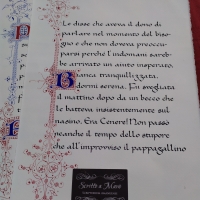 Le disse che aveva il dono di
parlare nel momento del biso-
gno e che non doveva preoccu-
parsi perché l'indomani sareb-
be arrivato un aiuto insperato.
Bianca tranquillizzata,
dormì serena. Fu svegliata
il mattino dopo da un becco che
le batteva insistentemente sul
nasino. Era Cenere! Non passò
neanche il tempo dello stupore
che all'improvviso il pappagallino
Scritto a Mano